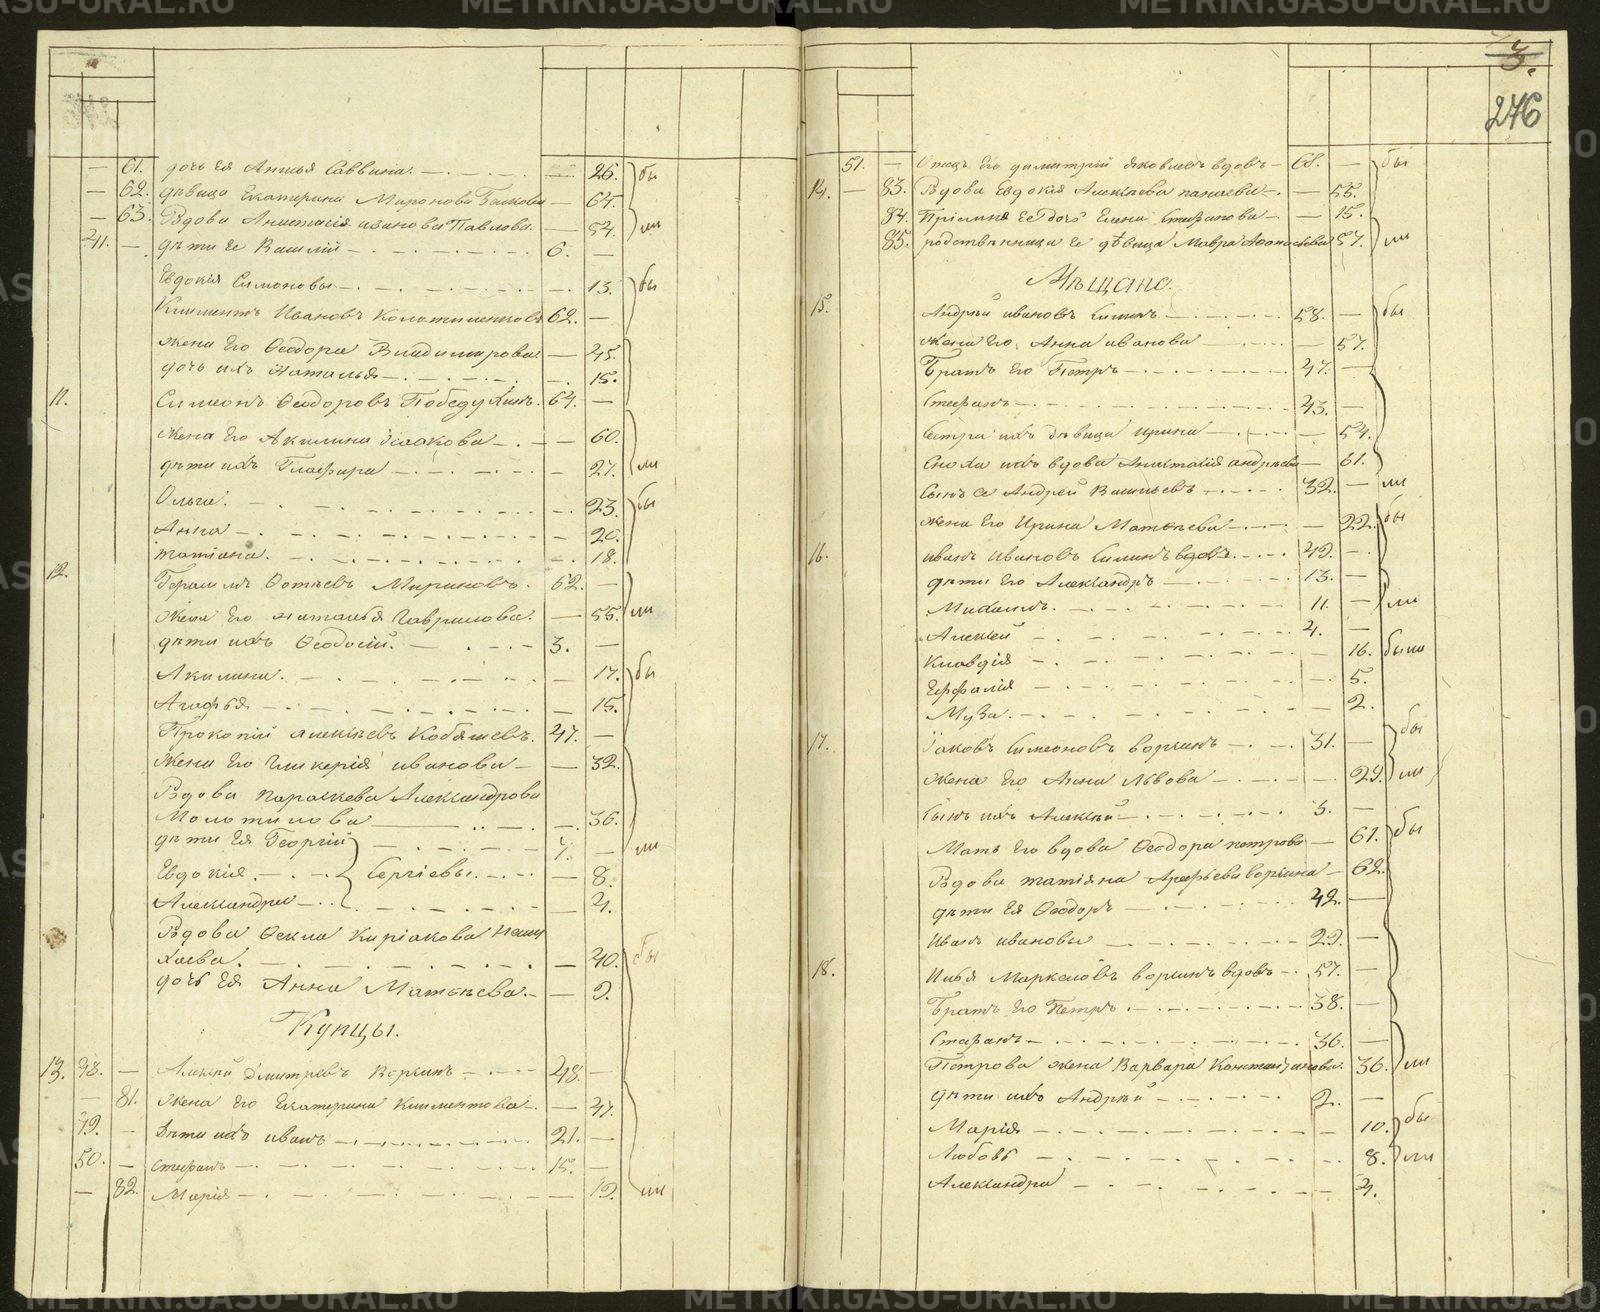 METRIKI.GASO-URAL.RU
— 61. дочь Ея Анисья Саввина — 26. бы
— 62. дѣвица Екатерина Миронова — 64.
— 63. Вдова Анастасія иванова Павлова — 54. ли
41. — дѣти Ее Василій — 6. —
Евдокія Симоновы — 13. бы
Климентъ Ивановъ 62. —
жена Его Ѳеодора Владимирова — 45.
дочь ихъ Наталья — 15.
11. Симионъ Ѳеодоровъ 64. —
жена Его Акилина Исаакова — 60.
дѣти ихъ Глафира — 27. ли
Ольга — 23. бы
Анна — 20.
татіана — 18.
12. Герасимъ Ѳотѣевъ Мироновъ 62. —
жена Его наталья Гаврилова — 55. ли
дѣти ихъ Ѳеодосій 3. —
Акилина — 17. бы
Агафья — 15.
Прокопій алексѣевъ Кобяшевъ 47. —
жена Его Гликерія иванова — 32.
Вдова параскева Александрова
Молотилова — 36.
дѣти Ея Георгій 7. — ли
Евдокія — Сергіевы — 8.
Александра — 4.
Вдова Ѳекла Киріакова
— 40. бы
дочь Ея Анна Матвѣева — 9.
Купцы.
13. 48. — Алексѣй Дмитріевъ 48. —
— 81. жена Его Екатерина Климентова — 47.
49. — Дѣти ихъ иванъ — 21. —
50. — стефанъ — 15. —
— 82. Марія — 19. ли
3.
276
51. — Отецъ Его димитрій яковлевъ вдовъ — 68. — бы
14. — 83. Вдова Евдокія Алексѣева — 55.
84. Ее дочь Елена Стефанова — 15.
85. родственница Ее дѣвица Мавра 57. ли
Мѣщане.
15. Андрей ивановъ 58. — бы
жена Его Анна иванова — 57.
Братъ Его Петръ 47. —
Стефанъ 43. —
Сестра ихъ дѣвица ирина — 54.
Сноха ихъ вдова Анастасія андрѣева — 61.
Сынъ Ее Андрей Васильевъ 32. — ли
жена Его Ирина Матвѣева — 22. бы
16. иванъ ивановъ вдовъ 49. —
дѣти Его Александръ 13. —
Михаилъ 11. — ли
Алексѣй 4. —
Клавдія — 16. были
— 5.
Муза — 2.
17. Іаковъ Симеоновъ 31. — бы
жена Его Анна Львова — 29. ли
Сынъ ихъ Алексѣй 3. —
Мать Его вдова Ѳеодора петрова — 61. бы
Вдова татіяна — 62.
дѣти Ея Ѳеодоръ 42. —
Иванъ ивановы 29. —
18. Илья Маркеловъ вдовъ 57. —
Братъ Его Петръ 38. —
Стефанъ 36. —
Петрова жена Варвара Константинова 36. ли
дѣти ихъ Андрей 2. —
Марія — 10. бы
Любовь — 8. ли
Александра — 4.